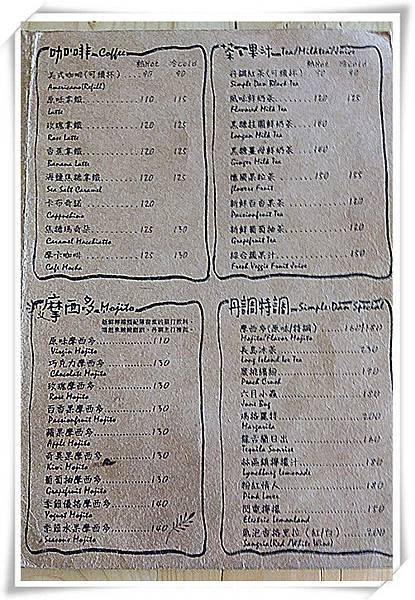 咖啡 Coffee
熱Hot 冷Cold
美式咖啡(可續杯) 90 90
Americano(Refill)
原味拿鐵 110 115
Latte
玫瑰拿鐵 120 125
Rose Latte
香蕉拿鐵 120 125
Banana Latte
海鹽焦糖拿鐵 120 125
Sea Salt Caramel
卡布奇諾 120
Cappuchino
焦糖瑪奇朵 125 130
Caramel Macchiatto
摩卡咖啡 125 130
Cafe Mocha
熱Hot 冷Cold
丹調紅茶(可續杯) 90 90
Simple Dan Black Tea
風味鮮奶茶 120 125
Flavored Milk Tea
黑糖桂圓鮮奶茶 130
Longan Milk Tea
黑糖薑母鮮奶茶 130
Ginger Milk Tea
德國果粒茶 150 155
Flowers Fruit
新鮮百香果茶
Passionfruit Tea
新鮮葡萄柚茶
Grapefruit Tea
綜合蔬果汁 150
Fresh Veggie Fruit Juice
摩西多 Mojito
原味摩西多 110
Virgin Mojito
巧克力摩西多 130
Chocolate Mojito
玫瑰摩西多 130
Rose Mojito
百香果摩西多 130
Passionfruit Mojito
蘋果摩西多 130
Apple Mojito
奇異果摩西多 130
Kiwi Mojito
葡萄柚摩西多 130
Grapefruit Mojito
季節優格摩西多 140
Yogurt Mojito
季節水果摩西多 140
Seasons Mojito
丹調特調 Simple Dan Special
摩西多(原味/特調) 160/180
Mojito/Flavor Mojito
長島冰茶 230
Long Island Ice Tea
蜜桃繽紛 190
Peach Crush
六月小蟲 180
June Bug
瑪格麗特 200
Margarita
龍舌蘭日出 160
Tequila Sunrise
林區鎮檸檬汁 180
Lynchburg Lemonade
粉紅情人 180
Pink Lover
閃電檸檬 150
Electric Lemonland
(紅/白) 200
Sangria(Red/White Wine)